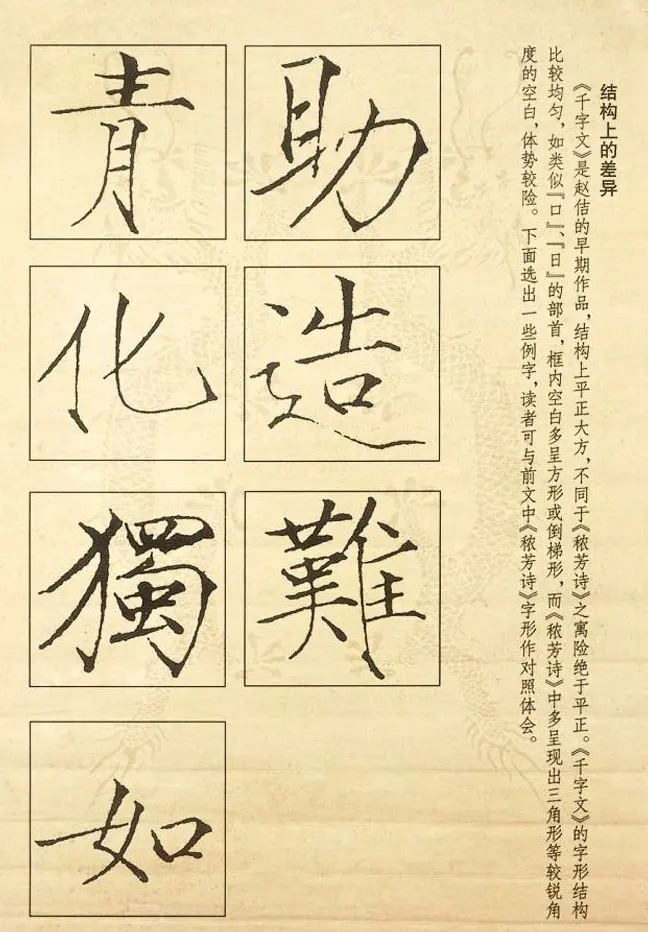 结构上的差异
《千字文》是赵佶的早期作品，结构上平正大方，不同于《秾芳诗》之寓险绝于平正。《千字文》的字形结构
比较均匀，如类似『口』、『日』的部首，框内空白多呈方形或倒梯形，而《秾芳诗》中多呈现出三角形等较锐角
度的空白，体势较险。下面选出一些例字，读者可与前文中《秾芳诗》字形作对照体会。
助
造
難
青
化
獨
如